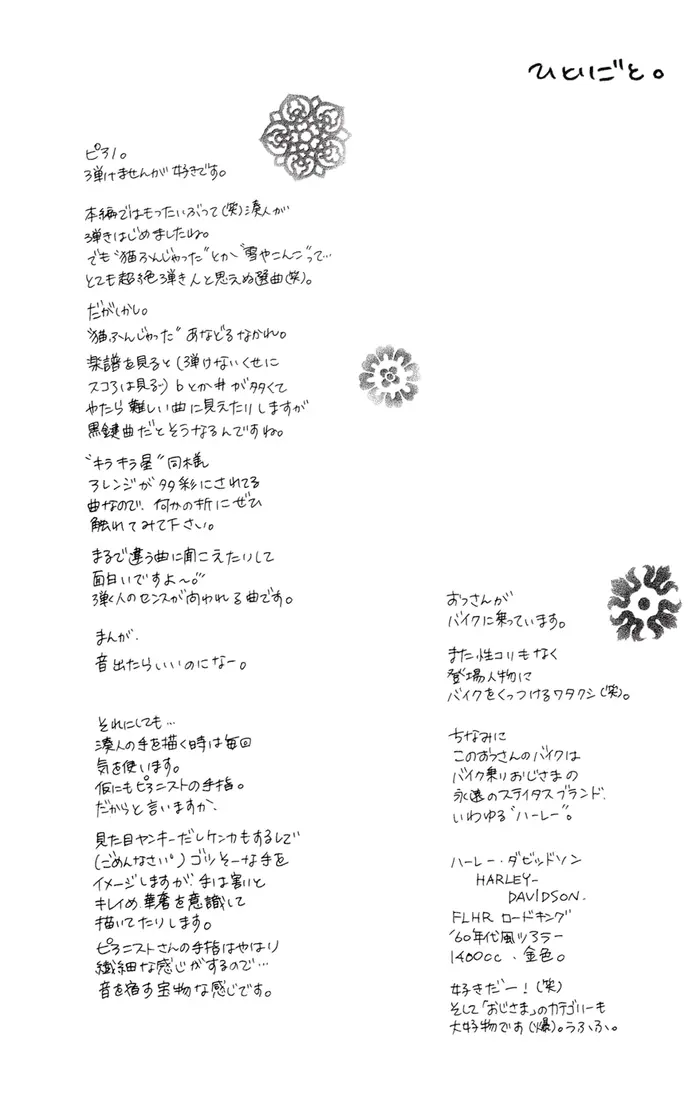 ひとりごと。
ピアノ。
弾けませんが好きです。
本編ではもったいぶって(笑)湊人が
弾きはじめましたね。
でも"猫ふんじゃった"とか"雪やこんこ"って…
とても超絶弾き人と思えぬ選曲(笑)。
だがしかし。
"猫ふんじゃった"あなどるなかれ。
楽譜を見ると(弾けないくせに
スコアは見る♭とか#が多くて
やたら難しい曲に見えたりしますが
黒鍵曲だとそうなるんですね。
"キラキラ星"同様
アレンジが多彩にされてる
曲なので、何かの折にぜひ
触れてみて下さい。
まるで違う曲に聞こえたりして
面白いですよ〜。
弾く人のセンスが問われる曲です。
まんが、
音出たらいいのになー。
それにしても…
湊人の手を描く時は毎回
気を使います。
仮にもピアニストの手指。
だからと言いますか、
見た目ヤンキーだしケンカもするしで
(ごめんなさい)ゴツそーな手を
イメージしますが、手は割と
キレイめ、華奢を意識して
描いてたりします。
ピアニストさんの手指はやはり
繊細な感じがするので…
音を宿す宝物な感じです。
おっさんが
バイクに乗っています。
また性コリもなく
登場人物に
バイクをくっつけるワタクシ(笑)。
ちなみに
このおっさんのバイクは
バイク乗りおじさまの
永遠のステイタスブランド、
いわゆる"ハーレー"。
ハーレー・ダビッドソン
HARLEY-
DAVIDSON.
FLHR ロードキング
'60年代風ツアラー
1400cc、金色。
好きだー!(笑)
そして「おじさま」のカテゴリーも
大好物です(爆)。うふふ。